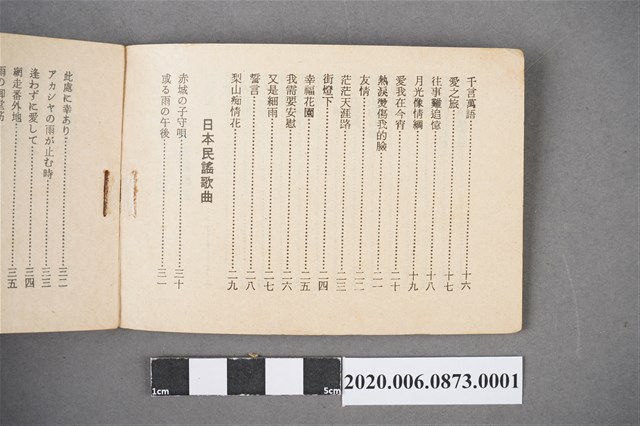 千言萬語……十六
愛之旅……十七
往事難追憶……十八
月光像情網……十九
愛我在今宵……二十
熱淚燙傷我的臉……二一
友情……二二
茫茫天涯路……二三
街燈下……二四
幸福花園……二五
我需要安慰……二六
又是細雨……二七
誓言……二八
梨山痴情花……二九
日本民謠歌曲
赤城の子守唄……三十
或る雨の午後……三一
此處に幸あり……三二
アカシヤの雨が止む時……三三
逢わずに愛して……三四
網走番外地……三五
1cm
5cm
2020.006.0873.0001